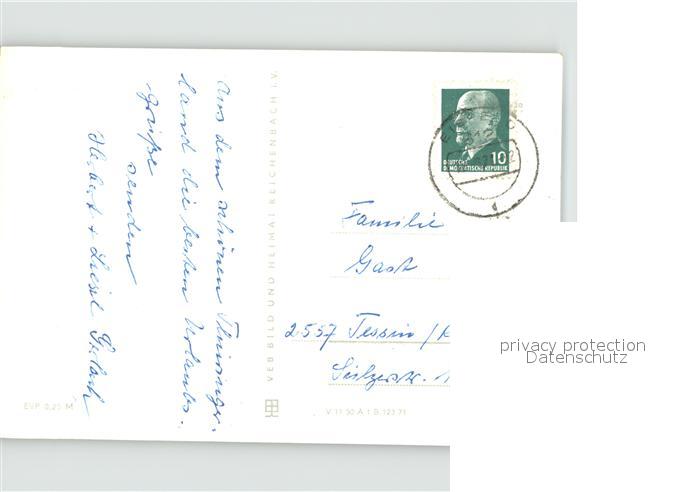 Aus dem schönen Thüringer-
land die besten Urlaubs-
grüße
senden
Herbert + Liesel
VEB BILD UND HEIMAT REICHENBACH I.V.
EVP 0,25 M
V 11 50 A 1 B 123 71
10
DEUTSCHE
DEMOKRATISCHE REPUBLIK
Familie
Gast
2557 Tessin
privacy protection
Datenschutz